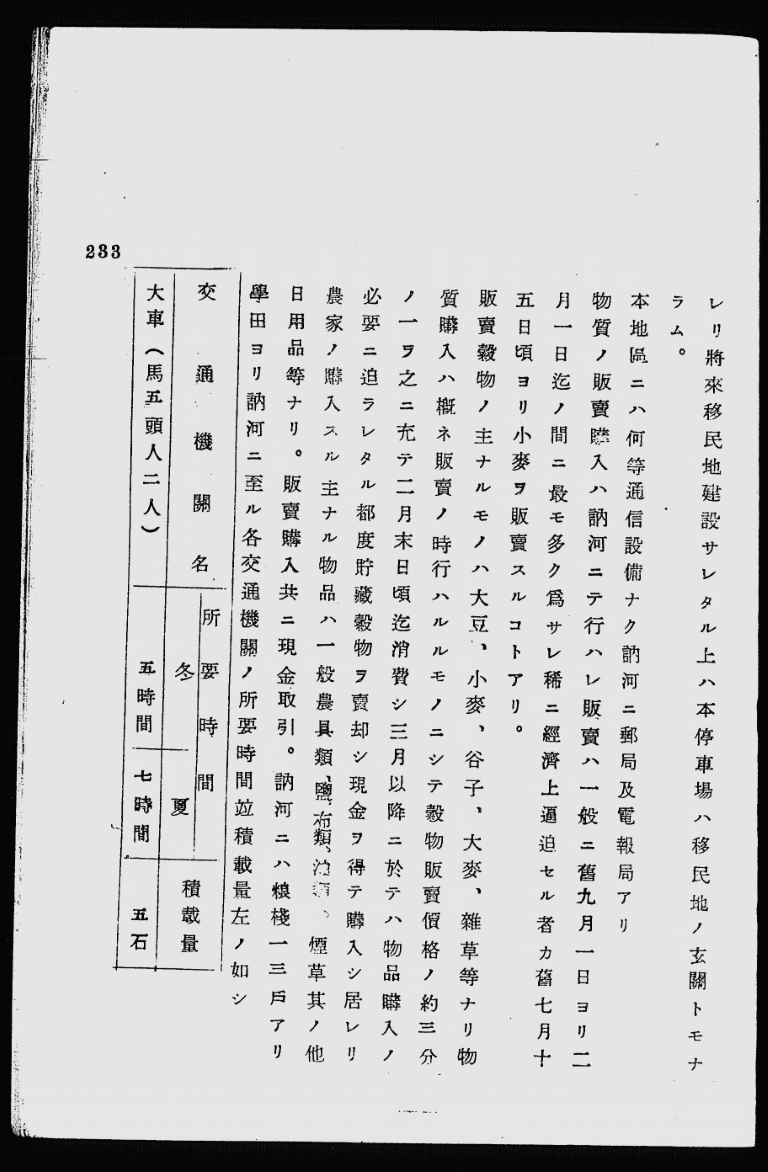 レリ將來移民地建設サレタル上ハ本停車場ハ移民地ノ玄關トモナ
ラム。
本地區ニハ何等通信設備ナク訥河ニ郵局及電報局アリ
物質ノ販賣購入ハ訥河ニテ行ハレ販賣ハ一般ニ舊九月一日ヨリ二
月一日迄ノ間ニ最モ多ク爲サレ稀ニ經濟上逼迫セル者カ舊七月十
五日頃ヨリ小麥ヲ販賣スルコトアリ。
販賣穀物ノ主ナルモノハ大豆、小麥、谷子、大麥、雜草等ナリ物
質購入ハ槪ネ販賣ノ時行ハルルモノニシテ穀物販賣價格ノ約三分
ノ一ヲ之ニ充テ二月末日頃迄消費シ三月以降ニ於テハ物品購入ノ
必要ニ迫ラレタル都度貯藏穀物ヲ賣却シ現金ヲ得テ購入シ居レリ
農家ノ購入スル主ナル物品ハ一般農具類、鹽、布類、油類、煙草其ノ他
日用品等ナリ。販賣購入共ニ現金取引。訥河ニハ粮棧一三戶アリ
學田ヨリ訥河ニ至ル各交通機關ノ所要時間竝積載量左ノ如シ
交通機關名 所要時間 冬 夏 積載量
大車（馬五頭人二人） 五時間 七時間 五石
233